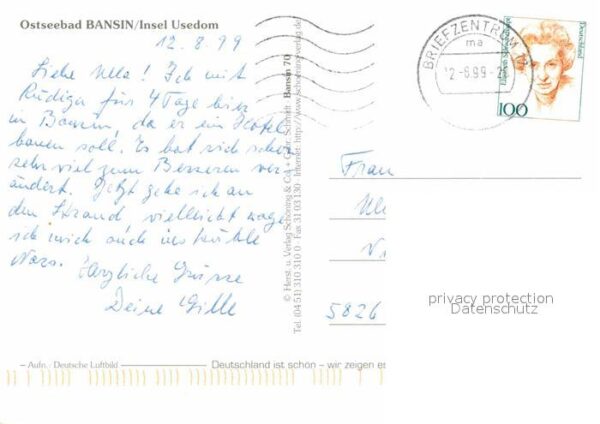 Ostseebad BANSIN/Insel Usedom
12.8.99
Liebe Ulla! Ich mit
Rüdiger für 4 Tage hier
in Bansin, da er ein Hotel
bauen soll. Es hat sich schon
sehr viel zum Besseren ver-
ändert. Jetzt gehe ich an
den Strand, vielleicht wage
ich mich auch ins kühle
Nass. Herzliche Grüsse
Deine Gille
Aufn.: Deutsche Luftbild
© Herst. u. Verlag Schöning & Co. + Gebr. Schmidt Bansin 70
Tel. (04 51) 310 310 0 · Fax 31 03 130 · Internet: http://www.schoening-verlag.de
BRIEFZENTRUM
ma
12-8.99-
Deutschland
100
Frau
Ull
5826
privacy protection
Datenschutz
Deutschland ist schön – wir zeigen es